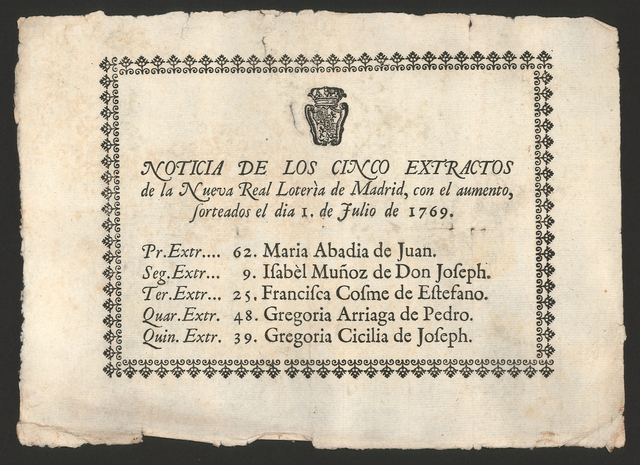 NOTICIA DE LOS CINCO EXTRACTOS
de la Nueva Real Loterìa de Madrid, con el aumento,
ſorteados el dia 1. de Julio de 1769.
Pr.Extr.... 62. Maria Abadia de Juan.
Seg.Extr... 9. Iſabèl Muñoz de Don Joſeph.
Ter.Extr... 25. Franciſca Coſme de Eſtefano.
Quar.Extr. 48. Gregoria Arriaga de Pedro.
Quin. Extr. 39. Gregoria Cicilia de Joſeph.